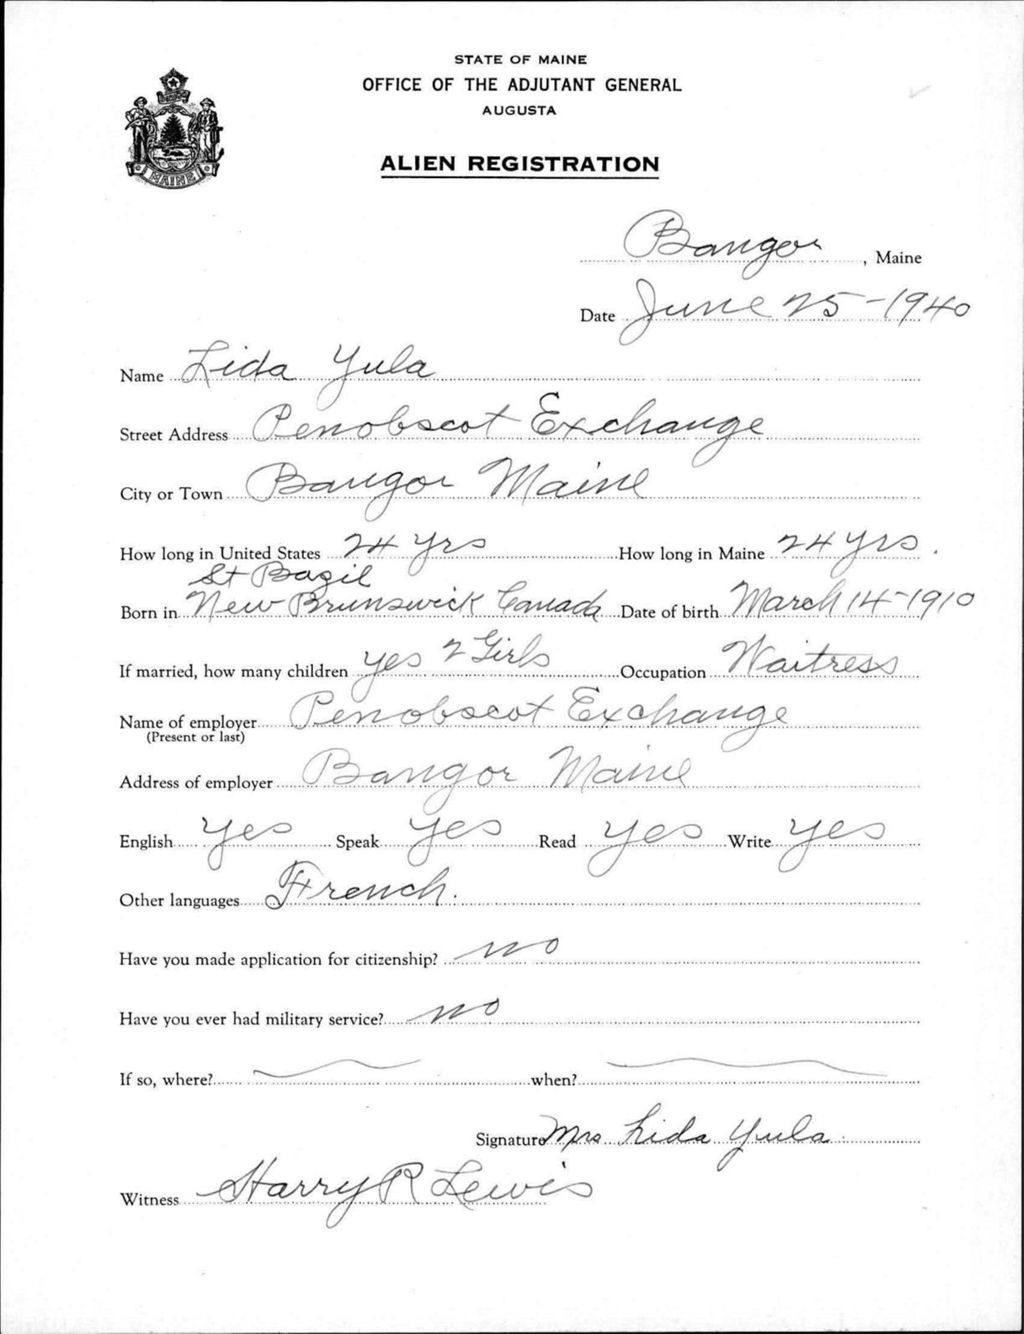 STATE OF MAINE
OFFICE OF THE ADJUTANT GENERAL
AUGUSTA
ALIEN REGISTRATION
MAINE
Bangor, Maine
Date June 25-1940
Name Lida Yula
Street Address Penobscot Exchange
City or Town Bangor Maine
How long in United States 24 Yrs How long in Maine 24 Yrs.
St Bazil
Born in New Brunswick Canada Date of birth March 14-1910
If married, how many children yes 2 Girls Occupation Waitress
Name of employer Penobscot Exchange
(Present or last)
Address of employer Bangor Maine
English yes Speak yes Read yes Write yes
Other languages French.
Have you made application for citizenship? no
Have you ever had military service? no
If so, where? when?
Signature Mrs Lida Yula
Witness Harry R Lewis